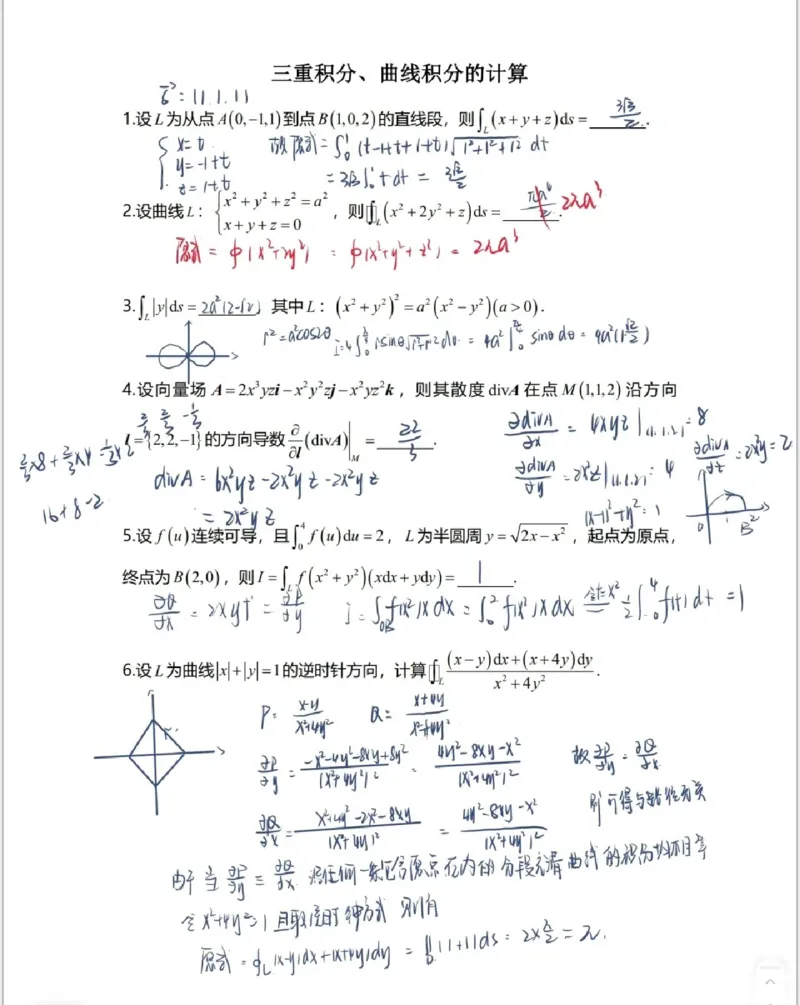 三重积分、曲线积分的计算
1.设L为从点A(0,−1,1)到点B(1,0,2)的直线段，则∫_L(x+y+z)ds= 3√3/2 .
{x=t, y=-1+t, z=1+t 故原式=∫_0^1(t-1+t+1+t)√(1²+1²+1²) dt
=3√3∫_0^1 t dt = 3√3/2
2.设曲线L：{x²+y²+z²=a², x+y+z=0 ，则∮_L(x²+2y²+z)ds= 2πa³
原式=∮(x²+2y²) = ∮(x²+y²+z²) = 2πa³
3.∫_L|y|ds= 2a²(2-√2) ，其中L：(x²+y²)²=a²(x²−y²)(a>0).
r²=a²cos2θ
4.设向量场 A=2x³yzi−x²y²zj−x²yz²k，则其散度divA在点M(1,1,2)沿方向
l={2,2,−1}的方向导数∂/∂l(divA)|_M= 22/3 .
2/3 2/3 -1/3
∂divA/∂x = 4xyz|(1,1,2)=8
∂divA/∂y = 2x²z|(1,1,2)=4
∂divA/∂z = 2x²y=2
2/3×8+2/3×4-1/3×2
16+8-2
divA = 6x²yz-2x²yz-2x²yz
= 2x²yz
(x-1)²+y²=1
5.设f(u)连续可导，且∫_0^4 f(u)du=2，L为半圆周y=√(2x−x²)，起点为原点，
终点为B(2,0)，则I=∫_L f(x²+y²)(xdx+ydy)= 1 .
∂Q/∂x = 2xyf' = ∂P/∂y I=∫_OB f(x²)xdx = ∫_0^2 f(x²)xdx 令t=x² 1/2∫_0^4 f(t)dt =1
6.设L为曲线|x|+|y|=1的逆时针方向，计算∮_L ((x−y)dx+(x+4y)dy)/(x²+4y²).
P= (x-y)/(x²+4y²) Q= (x+4y)/(x²+4y²)
∂P/∂y = (-x²-4y²-8xy+8y²)/(x²+4y²)² = (4y²-8xy-x²)/(x²+4y²)² 故∂P/∂y=∂Q/∂x
∂Q/∂x = (x²+4y²-2x²-8xy)/(x²+4y²)² = (4y²-8xy-x²)/(x²+4y²)²
则可得与路径无关
由于当∂P/∂y=∂Q/∂x 任何一条包含原点在内的分段光滑曲线的积分均相等
令x²+4y²=1 且取逆时针方式 则有
原式=∮_L(x-y)dx+(x+4y)dy = ∬(1+1)ds = 2×π/2 = π.